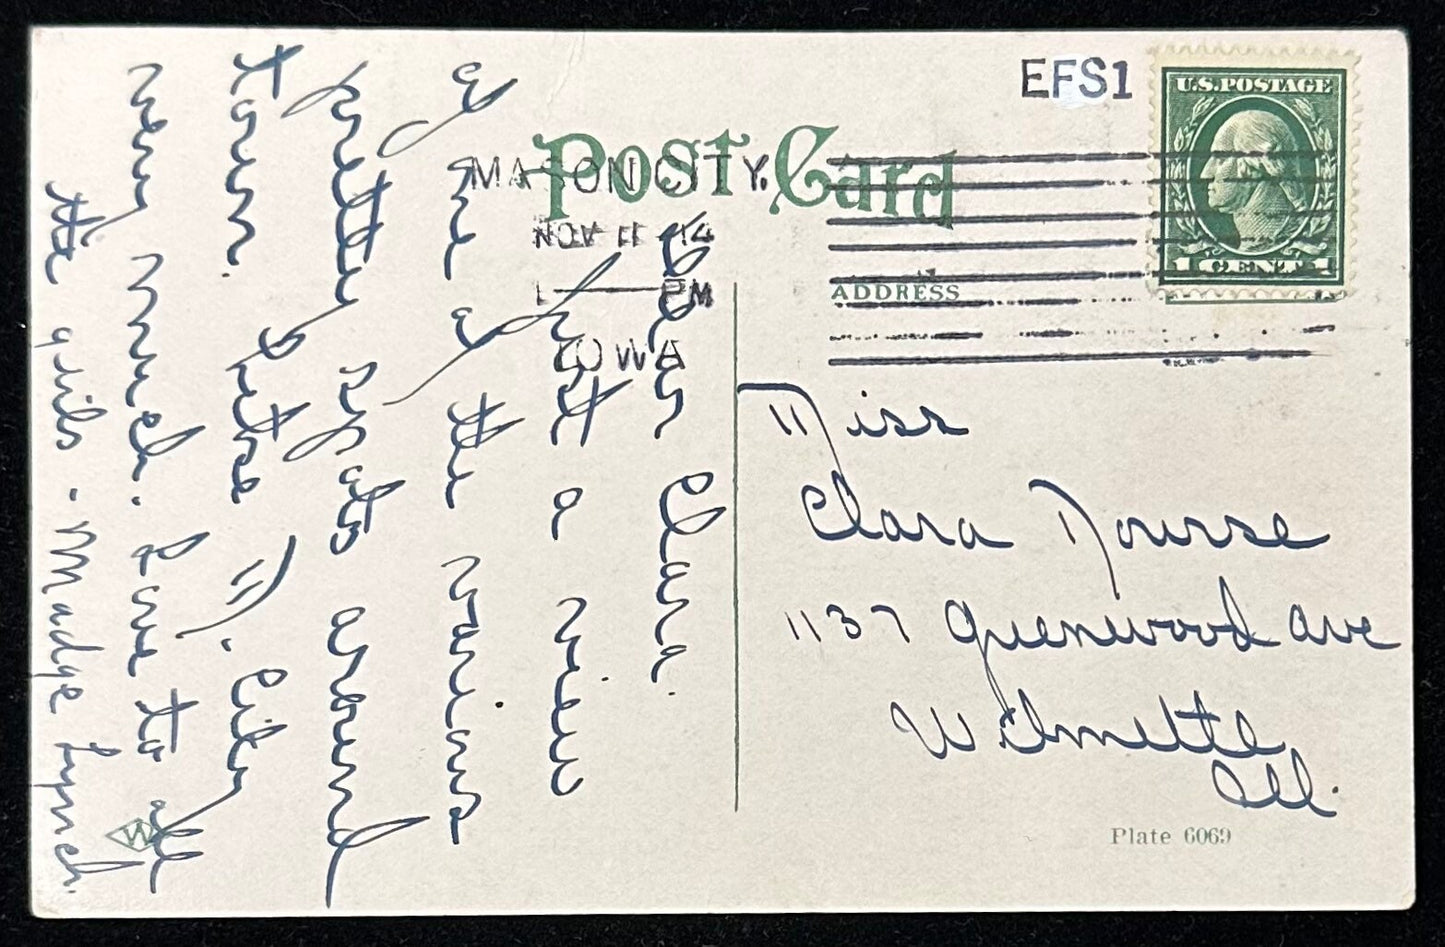 EFS1
U.S. POSTAGE
1 CENT 1
Post Card
MASON CITY,
NOV 11 '14
1 PM
IOWA
ADDRESS
Dear Clara.
Just a view
of one of the various
pretty spots around
town. I like M. City
very much. Love to all
the girls - Madge Lynch.
W
Miss
Clara Nourse
1137 Greenwood Ave
Wilmette,
Ill.
Plate 6069